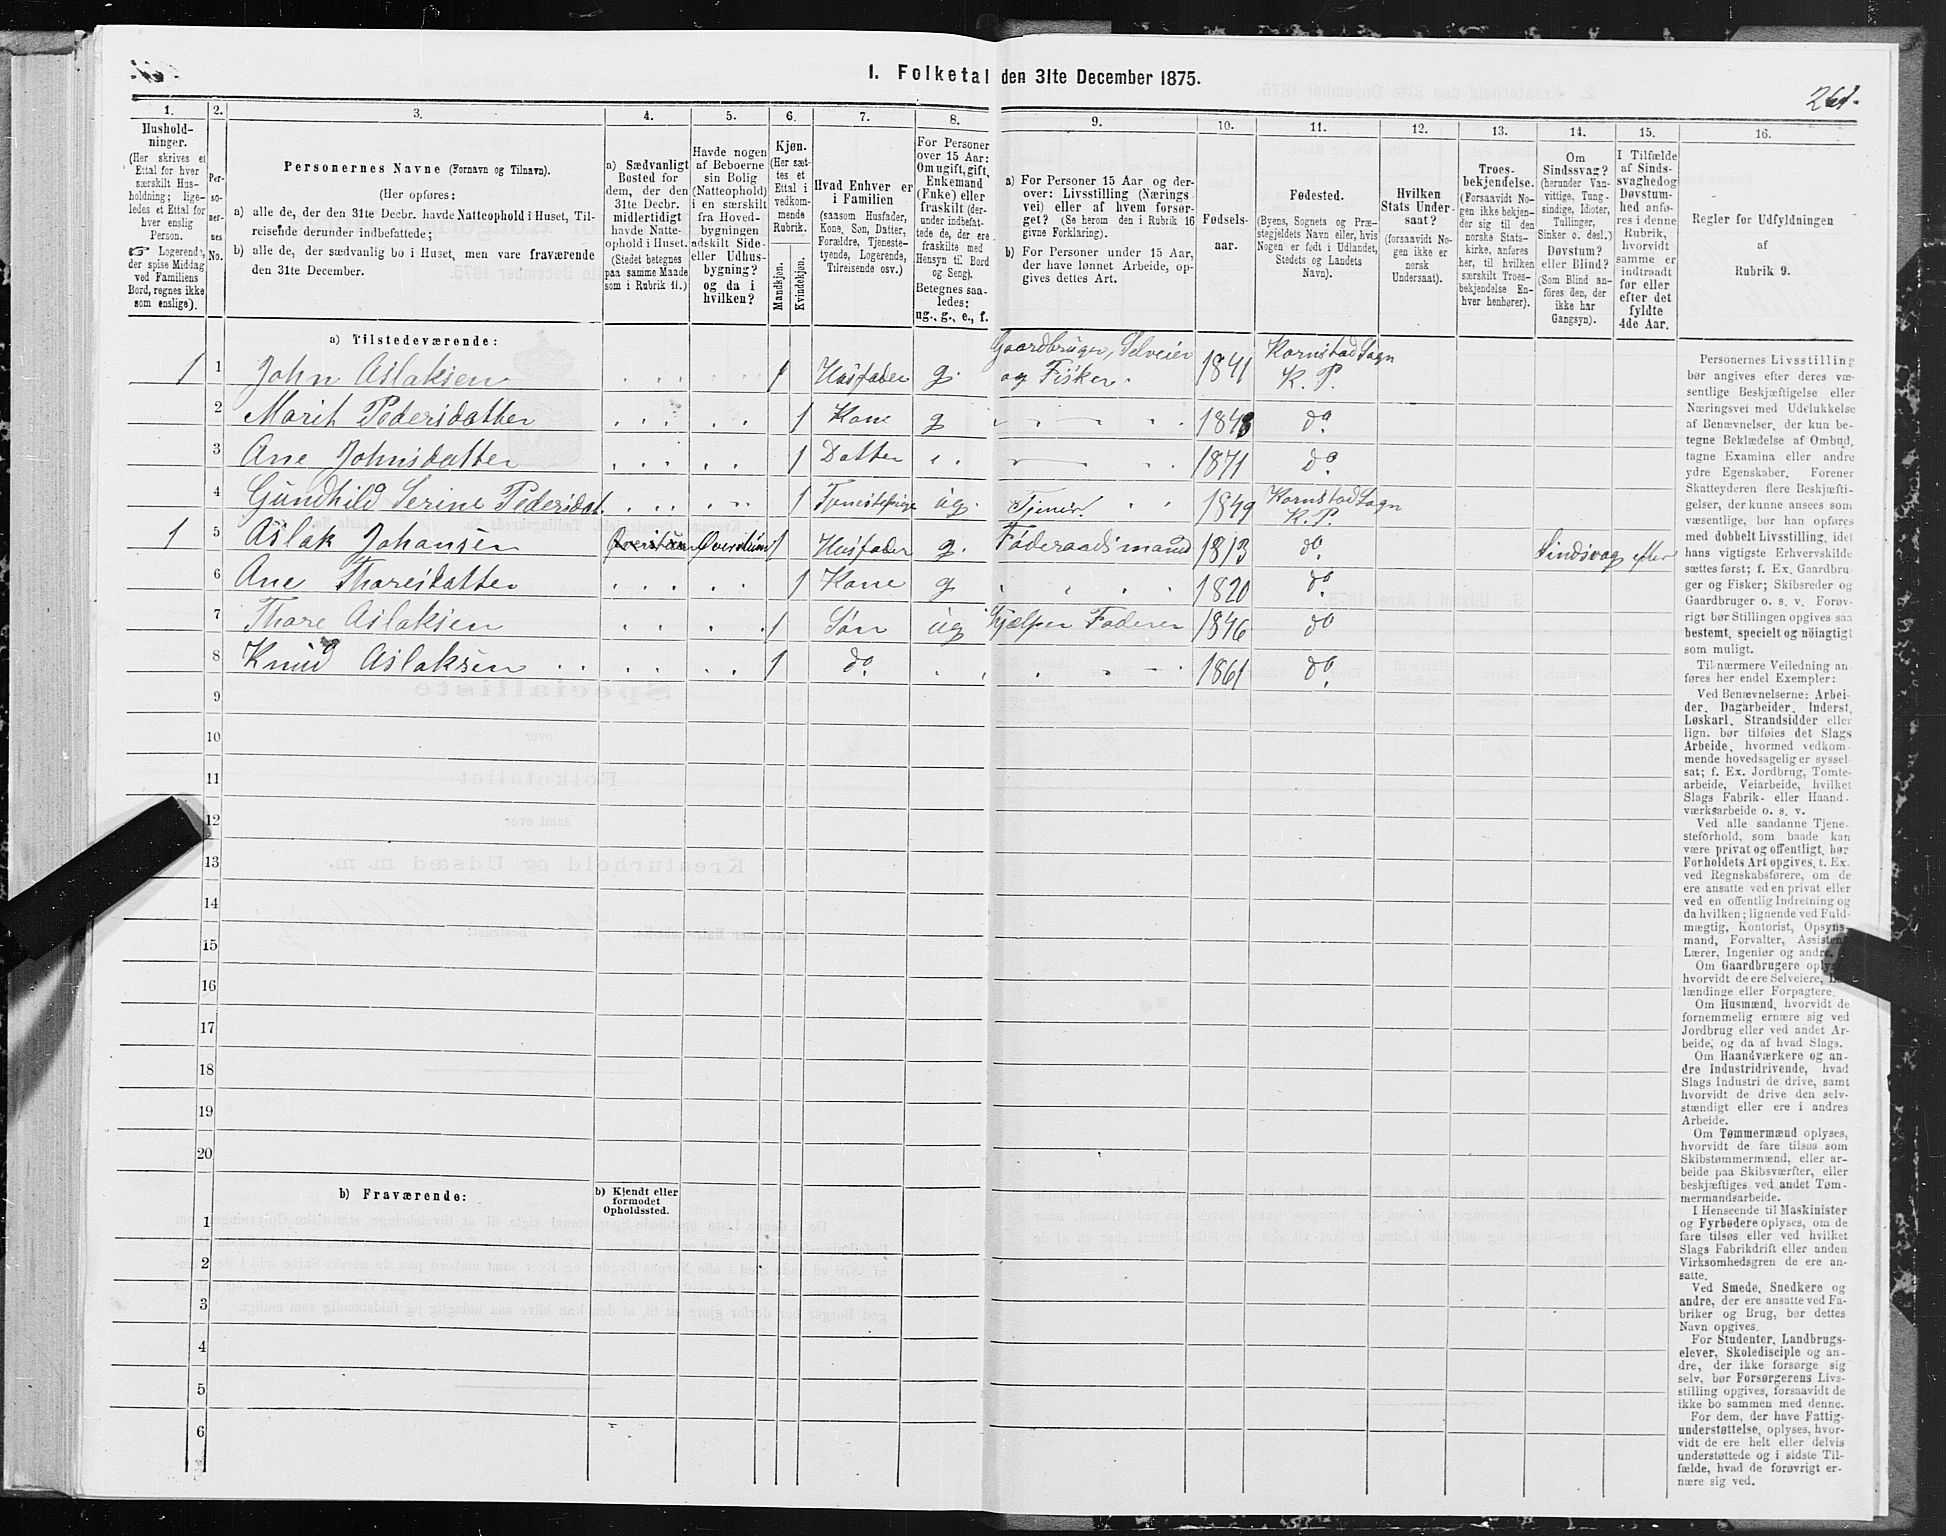 1. Folketal den 31te December 1875.
261.
1.
2.
3.
4.
5.
6.
7.
8.
9.
10.
11.
12.
13.
14.
15.
16.
Hushold-
ninger.
(Her skrives et
Ettal for hver
særskilt Hus-
holdning; lige-
ledes et Ettal for
hver enslig
Person.
☞ Logerende,
der spise Middag
ved Familiens
Bord, regnes ikke
som enslige).
Per-
so-
ner-
nes
No.
Personernes Navne (Fornavn og Tilnavn).
(Her opføres:
a) alle de, der den 31te Decbr. havde Natteophold i Huset, Til-
reisende derunder indbefattede;
b) alle de, der sædvanlig bo i Huset, men vare fraværende
den 31te December.
a) Sædvanligt
Bosted for
dem, der den
31te Decbr.
midlertidigt
havde Natte-
ophold i Huset.
(Stedet betegnes
paa samme Maade
som i Rubrik 11.)
Havde nogen
af Beboerne
sin Bolig
(Natteophold)
i en særskilt
fra Hoved-
bygningen
adskilt Side-
eller Udhus-
bygning?
og da i
hvilken?
Kjøn.
(Her sæt-
tes et
Ettal i
vedkom-
mende
Rubrik.
Mandkjøn.
Kvindekjøn.
Hvad Enhver er
i Familien
(saasom Husfader,
Kone, Søn, Datter,
Forældre, Tjeneste-
tyende, Logerende,
Tilreisende osv.)
For Personer
over 15 Aar:
Om ugift, gift,
Enkemand
(Enke) eller
fraskilt (der-
under indbefat-
tede de, der ere
fraskilte med
Hensyn til Bord
og Seng).
Betegnes saa-
ledes:
ug., g., e., f.
a) For Personer 15 Aar og der-
over: Livsstilling (Nærings-
vei) eller af hvem forsør-
get? (Se herom den i Rubrik 16
givne Forklaring).
b) For Personer under 15 Aar,
der have lønnet Arbeide, op-
gives dettes Art.
Fødsels-
aar.
Fødested.
(Byens, Sognets og Præ-
stegjeldets Navn eller, hvis
Nogen er født i Udlandet,
Stedets og Landets
Navn).
Hvilken
Stats Under-
saat?
(forsaavidt No-
gen ikke er
norsk
Undersaat).
Troes-
bekjendelse.
(Forsaavidt No-
gen ikke bekjen-
der sig til den
norske Stats-
kirke, anføres
her, til hvilken
særskilt Troes-
bekjendelse En-
hver henhører).
Om
Sindssvag?
(herunder Van-
vittige, Tung-
sindige, Idioter,
Sinker o. desl.)
Døvstum?
eller Blind?
(Som Blind an-
føres den, der
ikke har
Gangsyn).
I Tilfælde
af Sinds-
svaghed og
Døvstum-
hed anfø-
res i denne
Rubrik,
hvorvidt
samme er
indtraadt
før eller
efter det
fyldte
4de Aar.
Regler for Udfyldningen
af
Rubrik 9.
a) Tilstedeværende:
1 1 John Aslaksen 1 Husfader g. Gaardbruger, Selveier og Fisker. 1841 Kornstad Sogn K. P.
2 Marit Pedersdatter 1 Kone g 1843 do
3 Ane Johnsdatter 1 Datter 1871 do
4 Gundhild Serine Pedersdat. 1 Tjenestepige ug. Tjener. 1849 Kornstad Sogn K. P.
1 5 Aslak Johansen 1 Husfader g. Føderaadsmand 1813 do Sindsvag efter
6 Ane Tharesdatter 1 Kone g 1820 do
7 Thare Aslaksen 1 Søn ug Hjælper Faderen 1846 do
8 Knud Aslaksen 1 do 1861 do
9
10
11
12
13
14
15
16
17
18
19
20
b) Fraværende:
b) Kjendt eller
formodet
Opholdssted.
1
2
3
4
5
6
Personernes Livsstilling
bør angives efter deres væ-
sentlige Beskjæftigelse eller
Næringsvei med Udelukkelse
af Benævnelser, der kun be-
tegne Beklædelse af Ombud,
tagne Examina eller andre
ydre Egenskaber. Forener
Skatteyderen flere Beskjæfti-
gelser, der kunne ansees som
væsentlige, bør han opføres
med dobbelt Livsstilling, idet
hans vigtigste Erhvervskilde
sættes først; f. Ex. Gaardbru-
ger og Fisker; Skibsreder og
Gaardbruger o. s. v. Forøv-
rigt bør Stillingen opgives saa
bestemt, specielt og nöiagtigt
som muligt.
Til nærmere Veiledning an-
føres her endel Exempler:
Ved Benævnelserne: Arbei-
der, Dagarbeider, Inderst,
Løskarl, Strandsidder eller
lign. bør tilføies det Slags
Arbeide, hvormed vedkom-
mende hovedsagelig er syssel-
sat; f. Ex. Jordbrug, Tomte-
arbeide, Veiarbeide, hvilket
Slags Fabrik- eller Haand-
værksarbeide o. s. v.
Ved alle saadanne Tjene-
steforhold, som baade kan
være privat og offentligt, bør
Forholdets Art opgives, t. Ex.
ved Regnskabsførere, om de
ere ansatte ved en privat eller
ved en offentlig Indretning og
da hvilken; lignende ved Fuld-
mægtig, Kontorist, Opsyns-
mand, Forvalter, Assistent,
Lærer, Ingeniør og andre.
Om Gaardbrugere oplyses,
hvorvidt de ere Selveiere, Lei-
lændinge eller Forpagtere.
Om Husmænd, hvorvidt de
fornemmelig ernære sig ved
Jordbrug eller ved andet Ar-
beide, og da af hvad Slags.
Om Haandværkere og an-
dre Industridrivende, hvad
Slags Industri de drive, samt
hvorvidt de drive den selv-
stændigt eller ere i andres
Arbeide.
Om Tømmermænd oplyses,
hvorvidt de fare tilsøs som
Skibstømmermænd, eller ar-
beide paa Skibsværfter, eller
beskjæftiges ved andet Tøm-
mermandsarbeide.
I Henseende til Maskinister
og Fyrbødere oplyses, om de
fare tilsøs eller ved hvilket
Slags Fabrikdrift eller anden
Virksomhedsgren de ere an-
satte.
Ved Smede, Snedkere og
andre, der ere ansatte ved Fa-
briker og Brug, bør dettes
Navn opgives.
For Studenter, Landbrugs-
elever, Skoledisciple og an-
dre, der ikke forsørge sig
selv, bør Forsørgerens Livs-
stilling opgives, forsaavidt de
ikke bo sammen med denne.
For dem, der have Fattig-
understøttelse, oplyses, hvor-
vidt de ere helt eller delvis
understøttede og i sidste Til-
fælde, hvad de forøvrigt er-
nære sig ved.